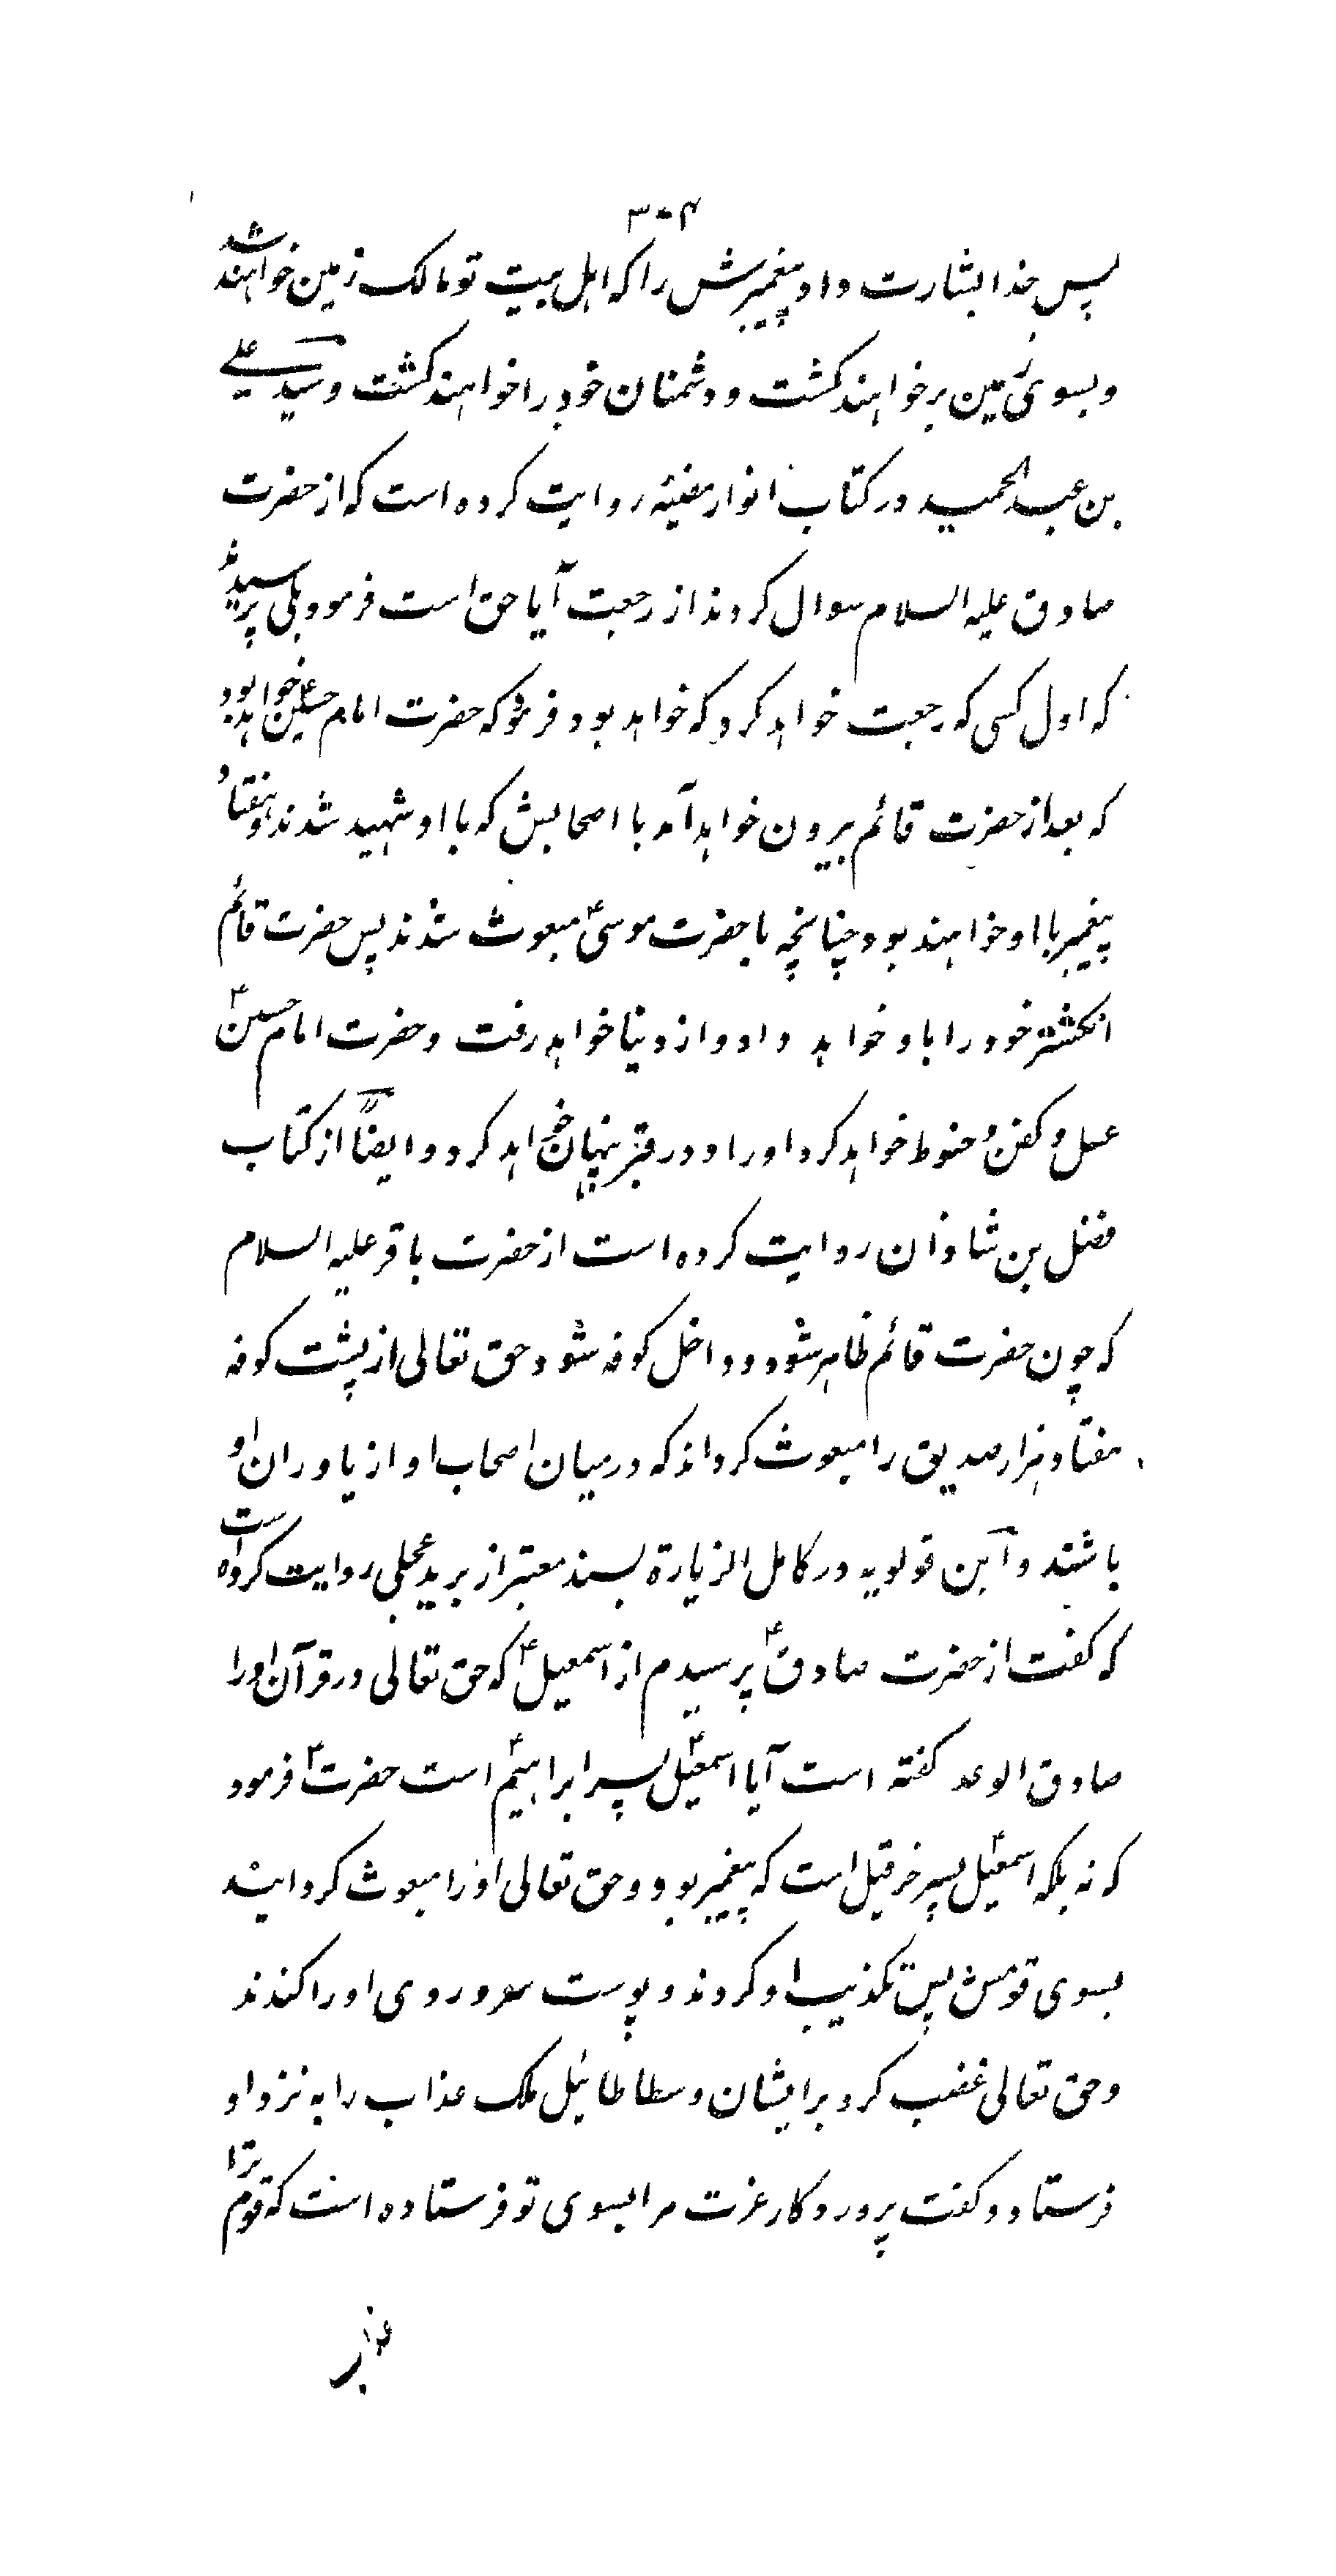 ۳۰۴
پس خدا بشارت داد پیغمبرش را که اهل بیت تو مالک زمین خواهند شد
و بسوی زمین برخواهند کشت و دشمنان خود را خواهند کشت و سید علی
بن عبد الحمید در کتاب انوار مضیئه روایت کرده است که از حضرت
صادق علیه السلام سوال کردند از رجعت آیا حق است فرمود بلی پرسیدند
که اول کسی که رجعت خواهد کرد که خواهد بود فرمود که حضرت امام حسین ع خواهد بود
که بعد از حضرت قائم بیرون خواهد آمد با اصحابش که با او شهید شدند و هفتاد
پیغمبر با او خواهند بود چنانچه با حضرت موسی ع مبعوث شدند پس حضرت قائم
انکشتر خود را باو خواهد داد و از دنیا خواهد رفت و حضرت امام حسین ع
غسل و کفن و حنوط خواهد کرد او را و در قبر پنهان خواهد کرد و ایضاً از کتاب
فضل بن شاذان روایت کرده است از حضرت باقر علیه السلام
که چون حضرت قائم ظاهر شود و داخل کوفه شود حق تعالی از پشت کوفه
هفتاد هزار صدیق را مبعوث کرداند که در میان اصحاب او از یاوران او
باشند و ابن قولویه در کامل الزیارة بسند معتبر از برید عجلی روایت کرده است
که کفت از حضرت صادق ع پرسیدم از اسمعیل ع که حق تعالی در قرآن او را
صادق الوعد کفته است آیا اسمعیل ع پسر ابراهیم ع است حضرت ع فرمود
که نه بلکه اسمعیل ع پسر خرقیل است که پیغمبر بود و حق تعالی او را مبعوث کردانید
بسوی قومش پس تکذیب او کردند و پوست سر و روی او را کندند
و حق تعالی غضب کرد بر ایشان و سطاطائیل ملک عذاب را به نزد او
فرستاد و کفت پروردکار عزت مرا بسوی تو فرستاده است که قوم ترا